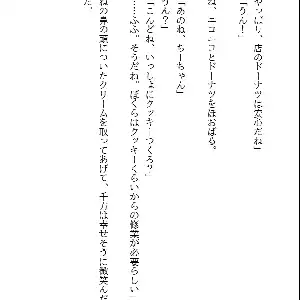 やっぱり、店のドーナツは安心だね」
「うん！」
ね、ニコニコとドーナツをほおばる。
「あのね、ちーちゃん」
うん？」
「こんどね、いっしょにクッキーつくろ？」
……ふふ。そうだね。ぼくらはクッキーくらいからの修業が必要らしい」
ねの鼻の頭についたクリームを取ってあげて、千方は幸せそうに微笑んだ
た。